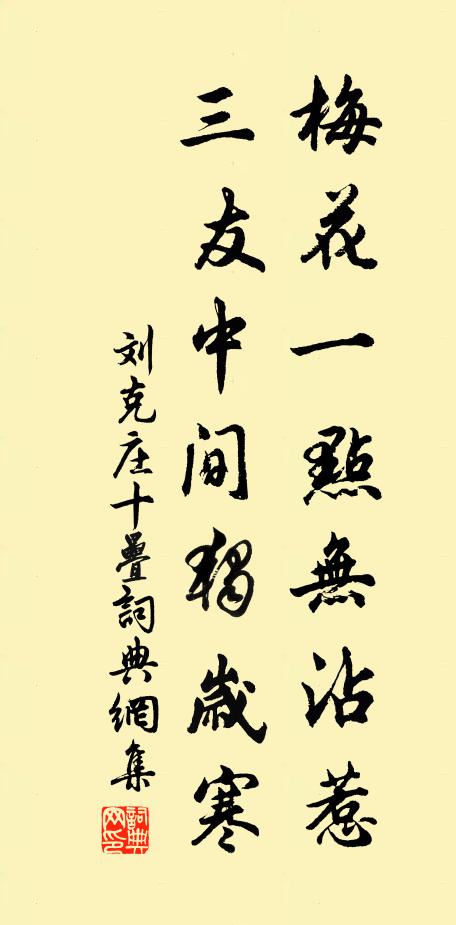 梅花一點無沾惹
三友中間獨歲寒
刘克庄十疊詞典網集
詞典網印